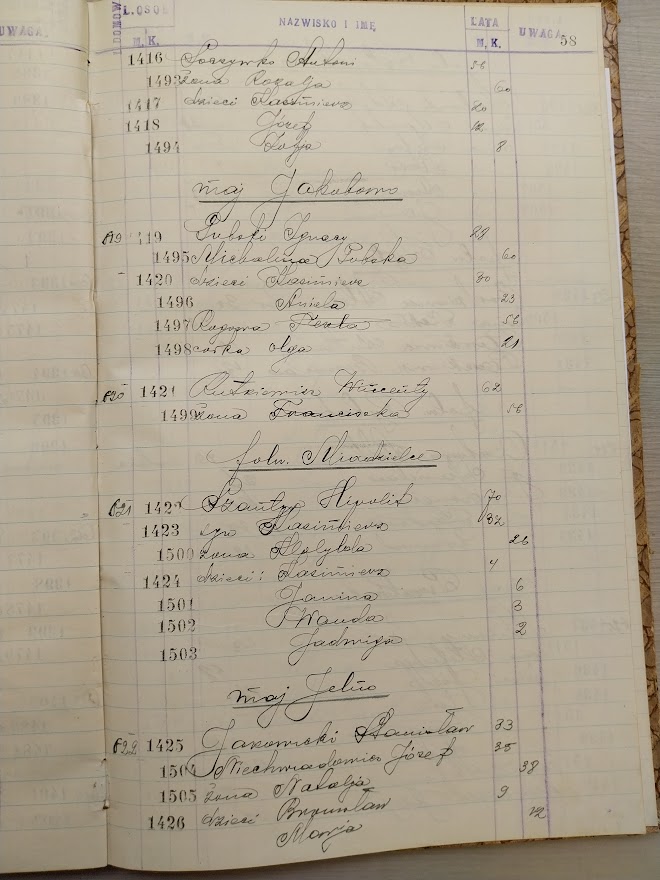 UWAGA
L.DOMÓW L.OSÓB NAZWISKO I IMĘ LATA UWAGA 58
M. K. M. K.
1416 Antoni 56
1493 żona Rozalja 60
1417 dzieci Kazimierz 20
1418 Józef 12
1494 Zofja 8
maj Jakubowo
619 1419 Ignacy 88
1495 Michalina 60
1420 dzieci Kazimierz 30
1496 Aniela 23
1497 56
1498 córka Olga 21
620 1421 Rutkiewicz Wincenty 62
1499 żona Franciszka 56
folw. Miadzielec
621 1422 Hipolit 70
1423 syn Kazimierz 32
1500 żona 26
1424 dzieci: Kazimierz 4
1501 Janina 6
1502 Wanda 3
1503 Jadwiga 2
maj Jelno
622 1425 Stanisław 33
1504 Niechwiadowicz Józef 35
1505 żona Natalja 38
1426 dzieci Bronisław 9
Marja 12